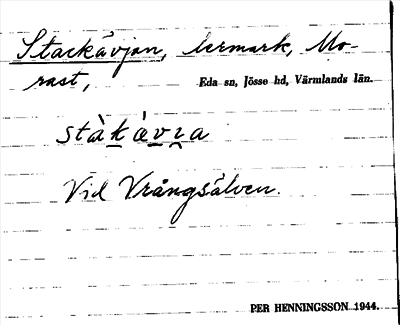 Stackåvjan, lermark, Mo-
rast, Eda sn, Jösse hd, Värmlands län.
stàk á v ɿ a
Vid Vrångsälven.
PER HENNINGSSON 1944.